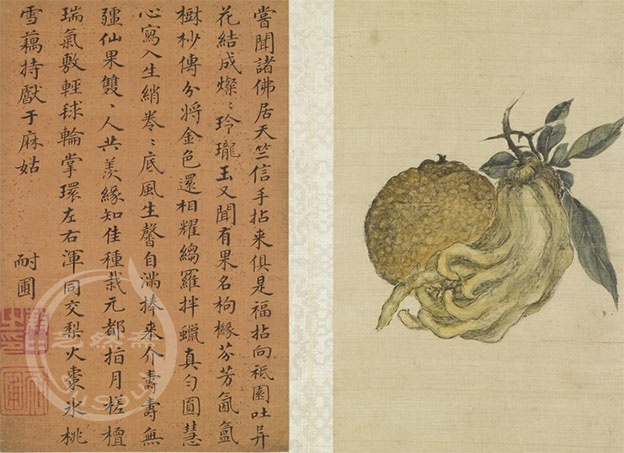 嘗聞諸佛居天竺信手拈来俱是福拈向祗園吐异
花結成燦〻玲瓏玉又聞有果名枸櫞芬芳氤氳
樹杪傳分將金色還相耀縐羅拌蠟真勻圓慧
心寫入生綃卷〻底風生馨自満捧来介壽壽無
疆仙果雙〻人共羨緣知佳種栽元都指月槎檀
瑞氣敷輕毬輪掌環左右渾同交梨火棗氷桃
雪藕持獻于麻姑
耐圃